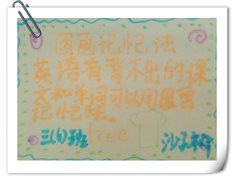 图画记忆法
英语有背不出的课
文和单词可以用图画
记忆法。
tree
班 沙子